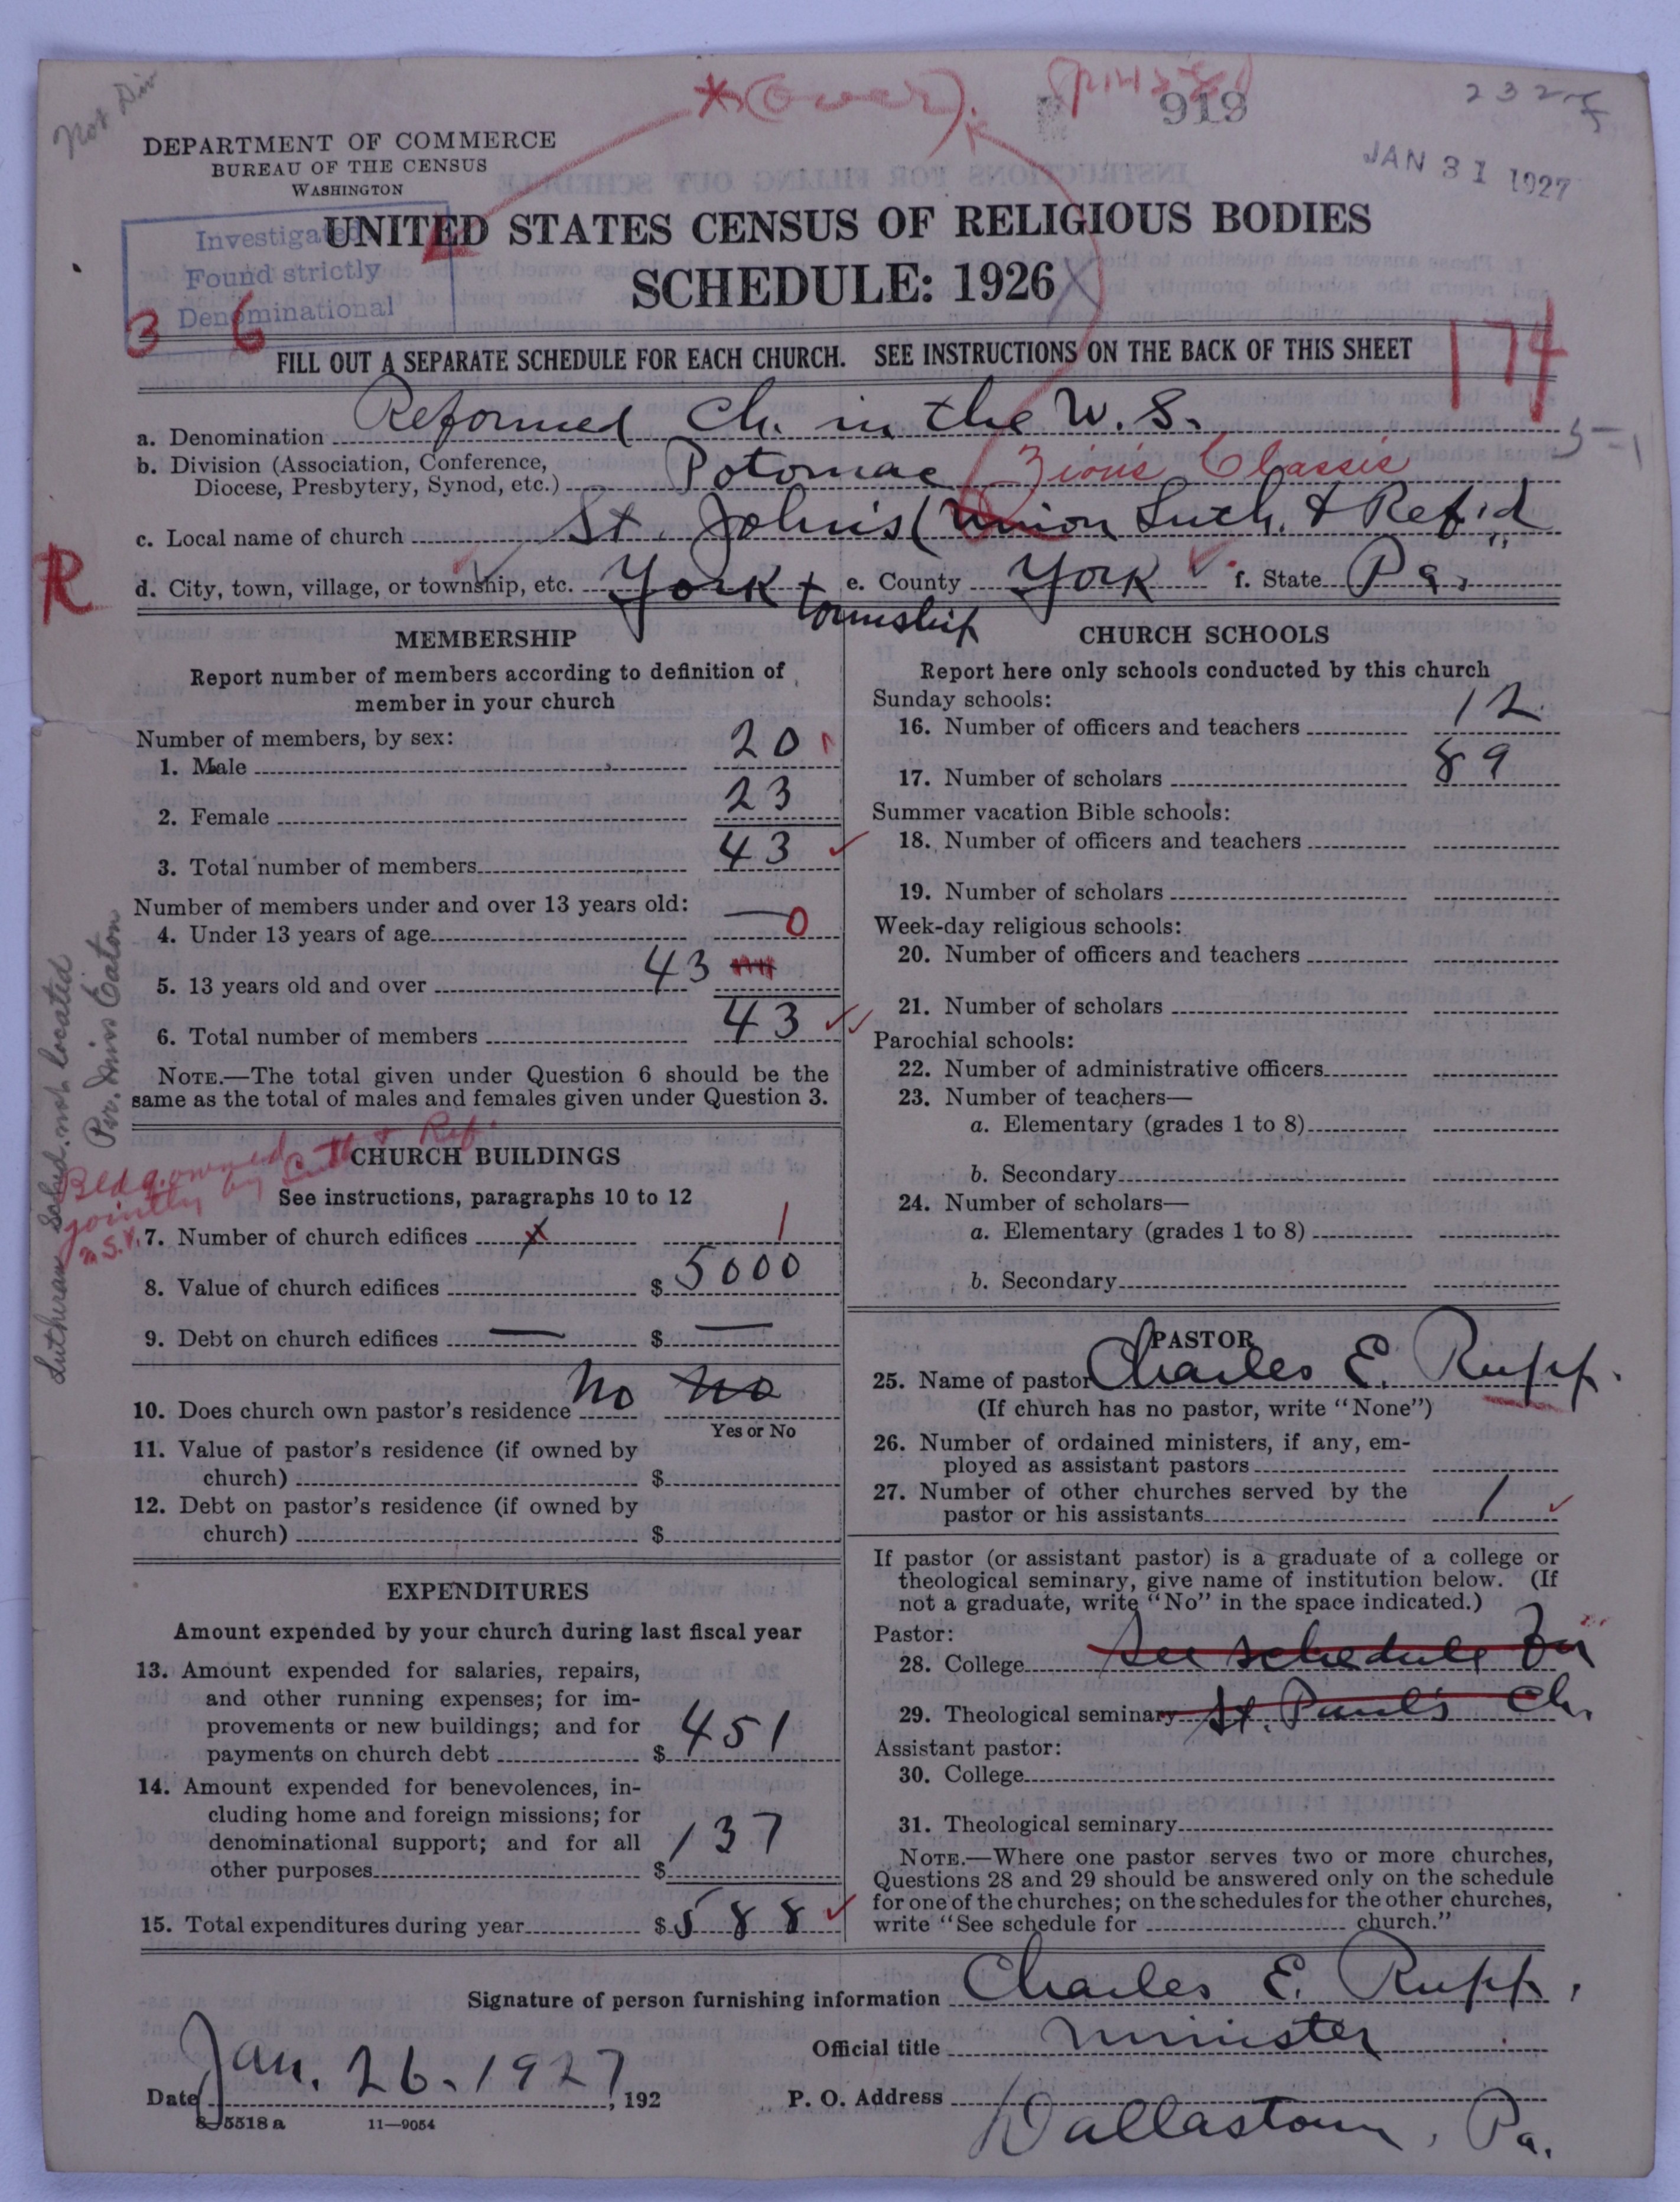 Not Div
*(Over)
919
232
JAN 31 1927
DEPARTMENT OF COMMERCE
BUREAU OF THE CENSUS
WASHINGTON
Investigated
Found strictly
Denominational
UNITED STATES CENSUS OF RELIGIOUS BODIES
SCHEDULE: 1926
3 6
174
FILL OUT A SEPARATE SCHEDULE FOR EACH CHURCH. SEE INSTRUCTIONS ON THE BACK OF THIS SHEET
a. Denomination Reformed Ch. in the U. S.
b. Division (Association, Conference,
Diocese, Presbytery, Synod, etc.) Potomac / Zion's Classis
5-1
c. Local name of church St. John's (Union Luth. & Ref'd
R
d. City, town, village, or township, etc. York township e. County York f. State Pa.
MEMBERSHIP
Report number of members according to definition of
member in your church
Number of members, by sex:
1. Male 20
2. Female 23
3. Total number of members 43
Number of members under and over 13 years old:
4. Under 13 years of age — 0
5. 13 years old and over 43
6. Total number of members 43
NOTE.—The total given under Question 6 should be the
same as the total of males and females given under Question 3.
Lutheran Sched. not located
Per. Miss Eaton
Bldg. owned
jointly by Luth & Ref.
m.S.V.
CHURCH BUILDINGS
See instructions, paragraphs 10 to 12
7. Number of church edifices x 1
8. Value of church edifices $ 5000
9. Debt on church edifices — $ —
10. Does church own pastor's residence No No
Yes or No
11. Value of pastor's residence (if owned by
church) $
12. Debt on pastor's residence (if owned by
church) $
EXPENDITURES
Amount expended by your church during last fiscal year
13. Amount expended for salaries, repairs,
and other running expenses; for im-
provements or new buildings; and for
payments on church debt $ 451
14. Amount expended for benevolences, in-
cluding home and foreign missions; for
denominational support; and for all
other purposes $ 137
15. Total expenditures during year $ 588
CHURCH SCHOOLS
Report here only schools conducted by this church
Sunday schools:
16. Number of officers and teachers 12
17. Number of scholars 89
Summer vacation Bible schools:
18. Number of officers and teachers
19. Number of scholars
Week-day religious schools:
20. Number of officers and teachers
21. Number of scholars
Parochial schools:
22. Number of administrative officers
23. Number of teachers—
a. Elementary (grades 1 to 8)
b. Secondary
24. Number of scholars—
a. Elementary (grades 1 to 8)
b. Secondary
PASTOR
25. Name of pastor Charles E. Rupp.
(If church has no pastor, write "None")
26. Number of ordained ministers, if any, em-
ployed as assistant pastors
27. Number of other churches served by the
pastor or his assistants 1
If pastor (or assistant pastor) is a graduate of a college or
theological seminary, give name of institution below. (If
not a graduate, write "No" in the space indicated.)
Pastor:
28. College See schedule for
29. Theological seminary St. Paul's Ch.
Assistant pastor:
30. College
31. Theological seminary
NOTE.—Where one pastor serves two or more churches,
Questions 28 and 29 should be answered only on the schedule
for one of the churches; on the schedules for the other churches,
write "See schedule for church."
Signature of person furnishing information Charles E. Rupp.
Official title Minister
Date Jan. 26. 1927, 192
P. O. Address Dallastown, Pa.
8-5518 a 11-9054